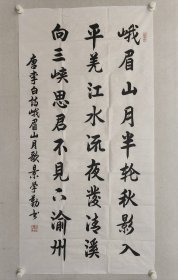 峨眉山月半轮秋影入
平羌江水流夜发清溪
向三峡思君不见下渝州
唐李白诗峨眉山月歌景学勤书